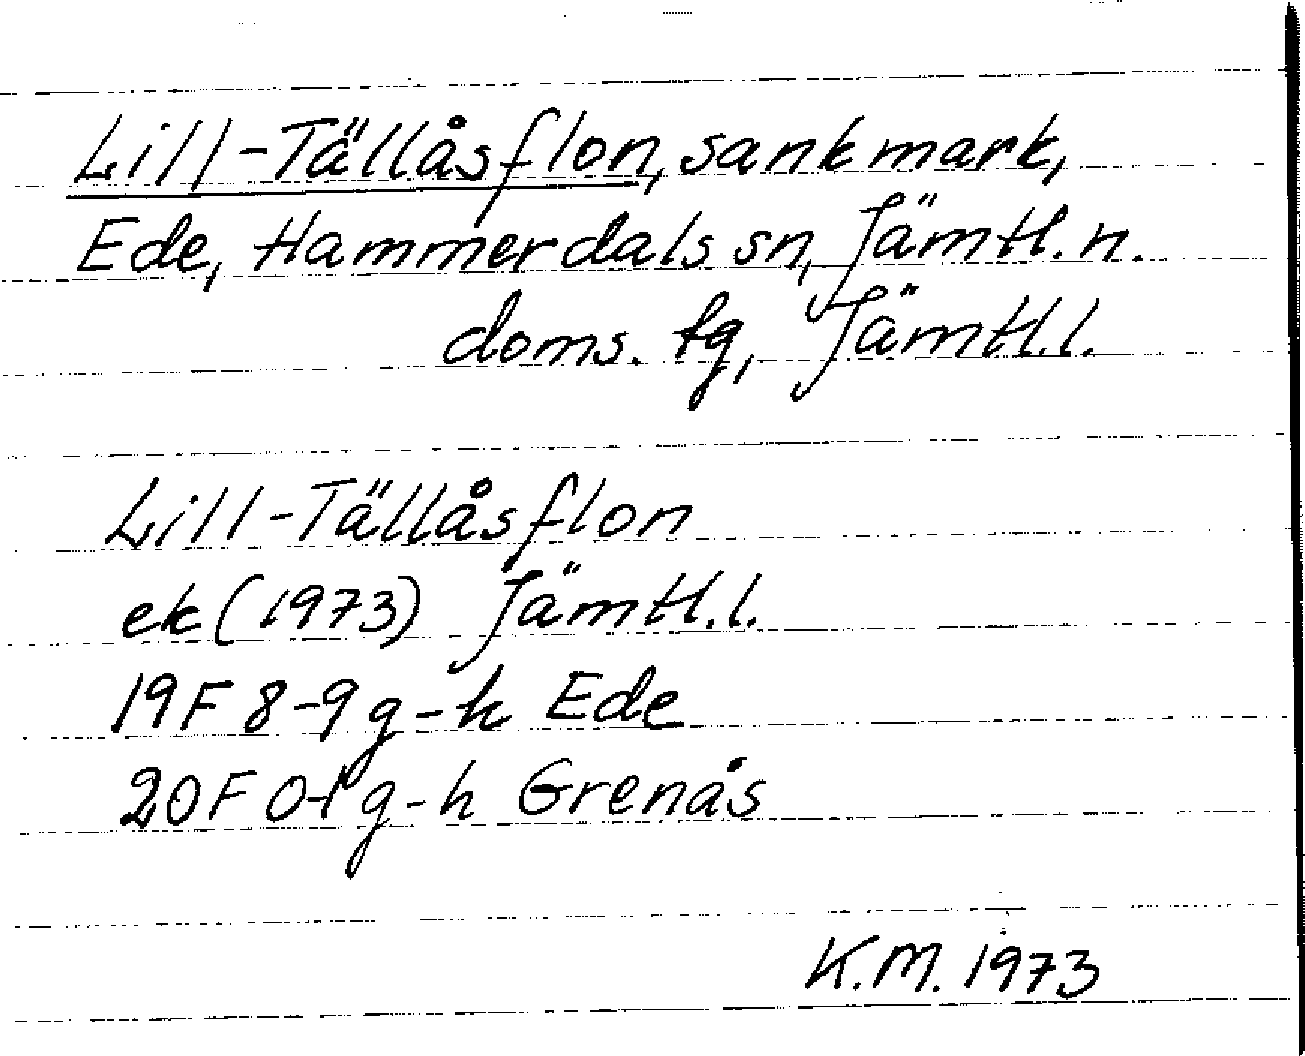 Lill-Tällåsflon, sankmark,
Ede, Hammerdals sn, Jämtl. n.
doms. tg, Jämtl. l.
Lill-Tällåsflon
ek (1973) Jämtl. l.
19F 8-9 g-h Ede
20F 0-1 g-h Grenås
K.M. 1973